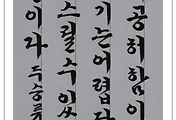 공허함이
기는어렵다
스릴수있
이라